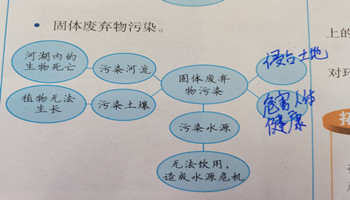 • 固体废弃物污染。
上的
河湖内的
生物死亡
污染河流
固体废弃
物污染
侵占土地
对环
植物无法
生长
污染土壤
危害人体
健康
污染水源
无法饮用、
造成水源危机